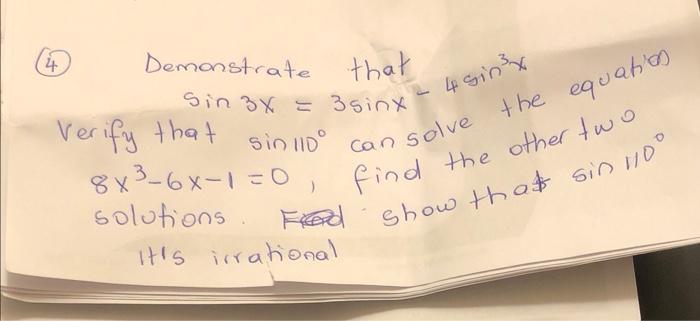 4 Demonstrate that
sin 3x = 3sinx - 4sin³x
Verify that sin110° can solve the equation
8x³-6x-1=0, find the other two
solutions. show that sin 110°
It's irrational